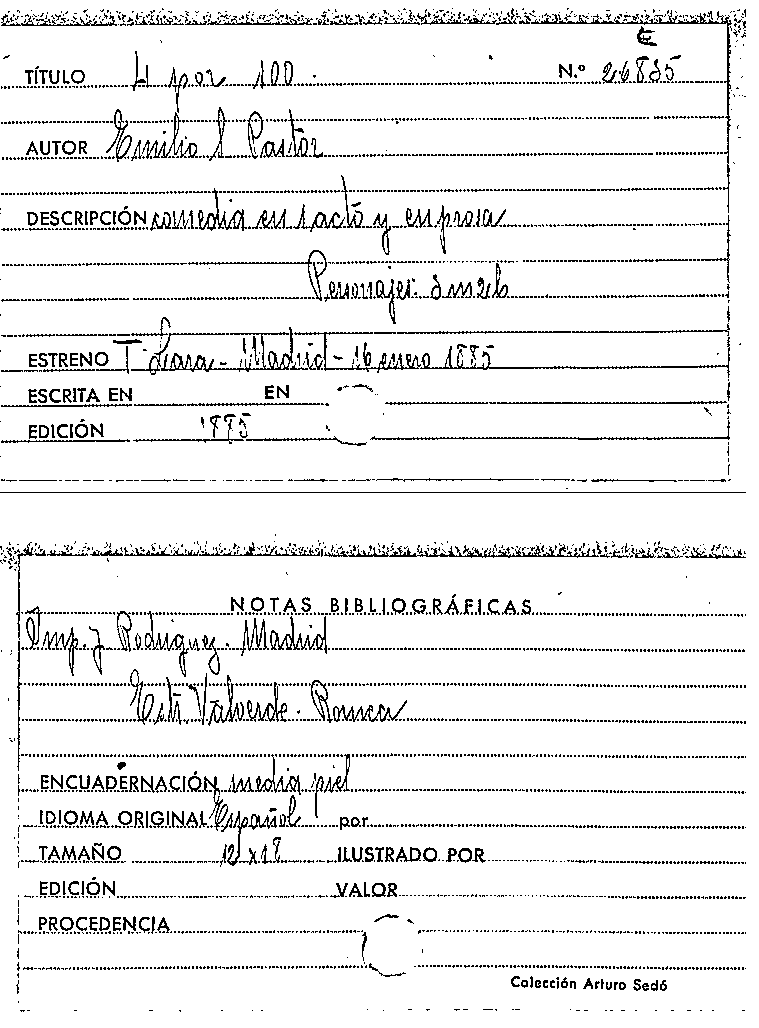 E
TÍTULO 4 por 100. N.º 26885
AUTOR Emilio S Pastor
DESCRIPCIÓN comedia en 1 acto y en prosa
Personajes: 3 m 2 h
ESTRENO T. Lara - Madrid - 16 enero 1885
ESCRITA EN EN
EDICIÓN 1885
NOTAS BIBLIOGRÁFICAS
Imp. J Rodriguez. Madrid
Valverde.
ENCUADERNACIÓN media piel
IDIOMA ORIGINAL Español por
TAMAÑO 12 x 18 ILUSTRADO POR
EDICIÓN VALOR
PROCEDENCIA
Colección Arturo Sedó